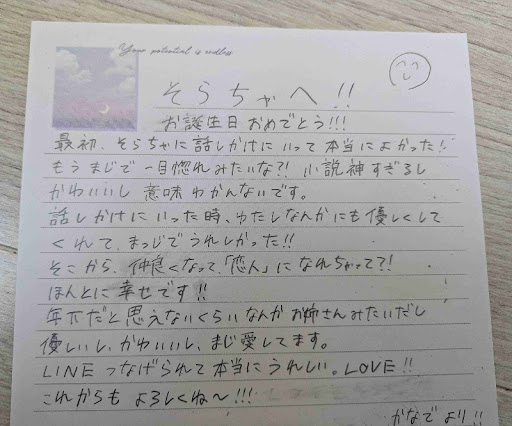 Your potential is endless
そらちゃへ!!
お誕生日おめでとう!!!
最初、そらちゃに話しかけにいって本当によかった!
もうまじで一目惚れみたいな?! 小説神すぎるし
かわいいし意味わかんないです。
話しかけにいった時、わたしなんかにも優しくして
くれて、まっじでうれしかった!!
そこから、仲良くなって、「恋人」になれちゃって?!
ほんとに幸せです!!
年下だと思えないくらいなんかお姉さんみたいだし
優しいし、かわいいし、まじ愛してます。
LINEつなげられて本当にうれしい。LOVE!!
これからもよろしくね〜!!!
かなでより!!